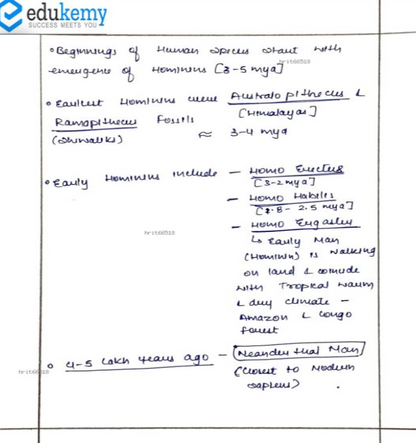 edukemy
SUCCESS MEETS YOU
• Beginnings of Human species start with
emergence of Hominins [3-5 mya]
• Earliest Hominins were Australopithecus &
[Himalayas]
Ramapithecus fossils
(Shiwaliks) ≈ 3-4 mya
• Early Hominins include – Homo Erectus
[3-2 mya]
– Homo Habilis
[2.8- 2.5 mya]
– Homo Ergaster
↳ Early Man
(Hominin) is walking
on land & coincide
with Tropical warm
& dry climate –
Amazon & Congo
forest
• 4-5 Lakh years ago – Neanderthal Man
(closest to Modern
sapiens)